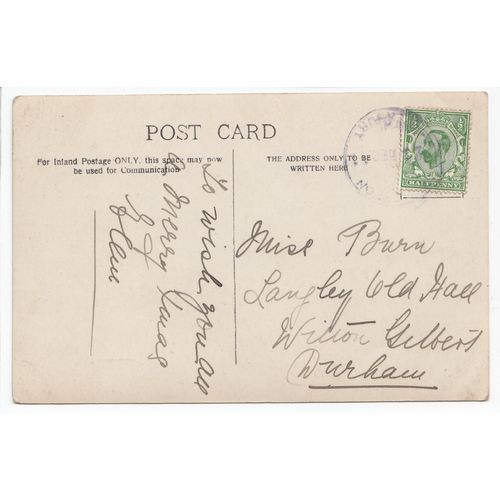 POST CARD
For Inland Postage ONLY, this space may now
be used for Communication
THE ADDRESS ONLY TO BE
WRITTEN HERE
To wish you all
a Merry Xmas
Miss Burn
Langley Old Hall
Witton Gilbert
Durham
HALFPENNY